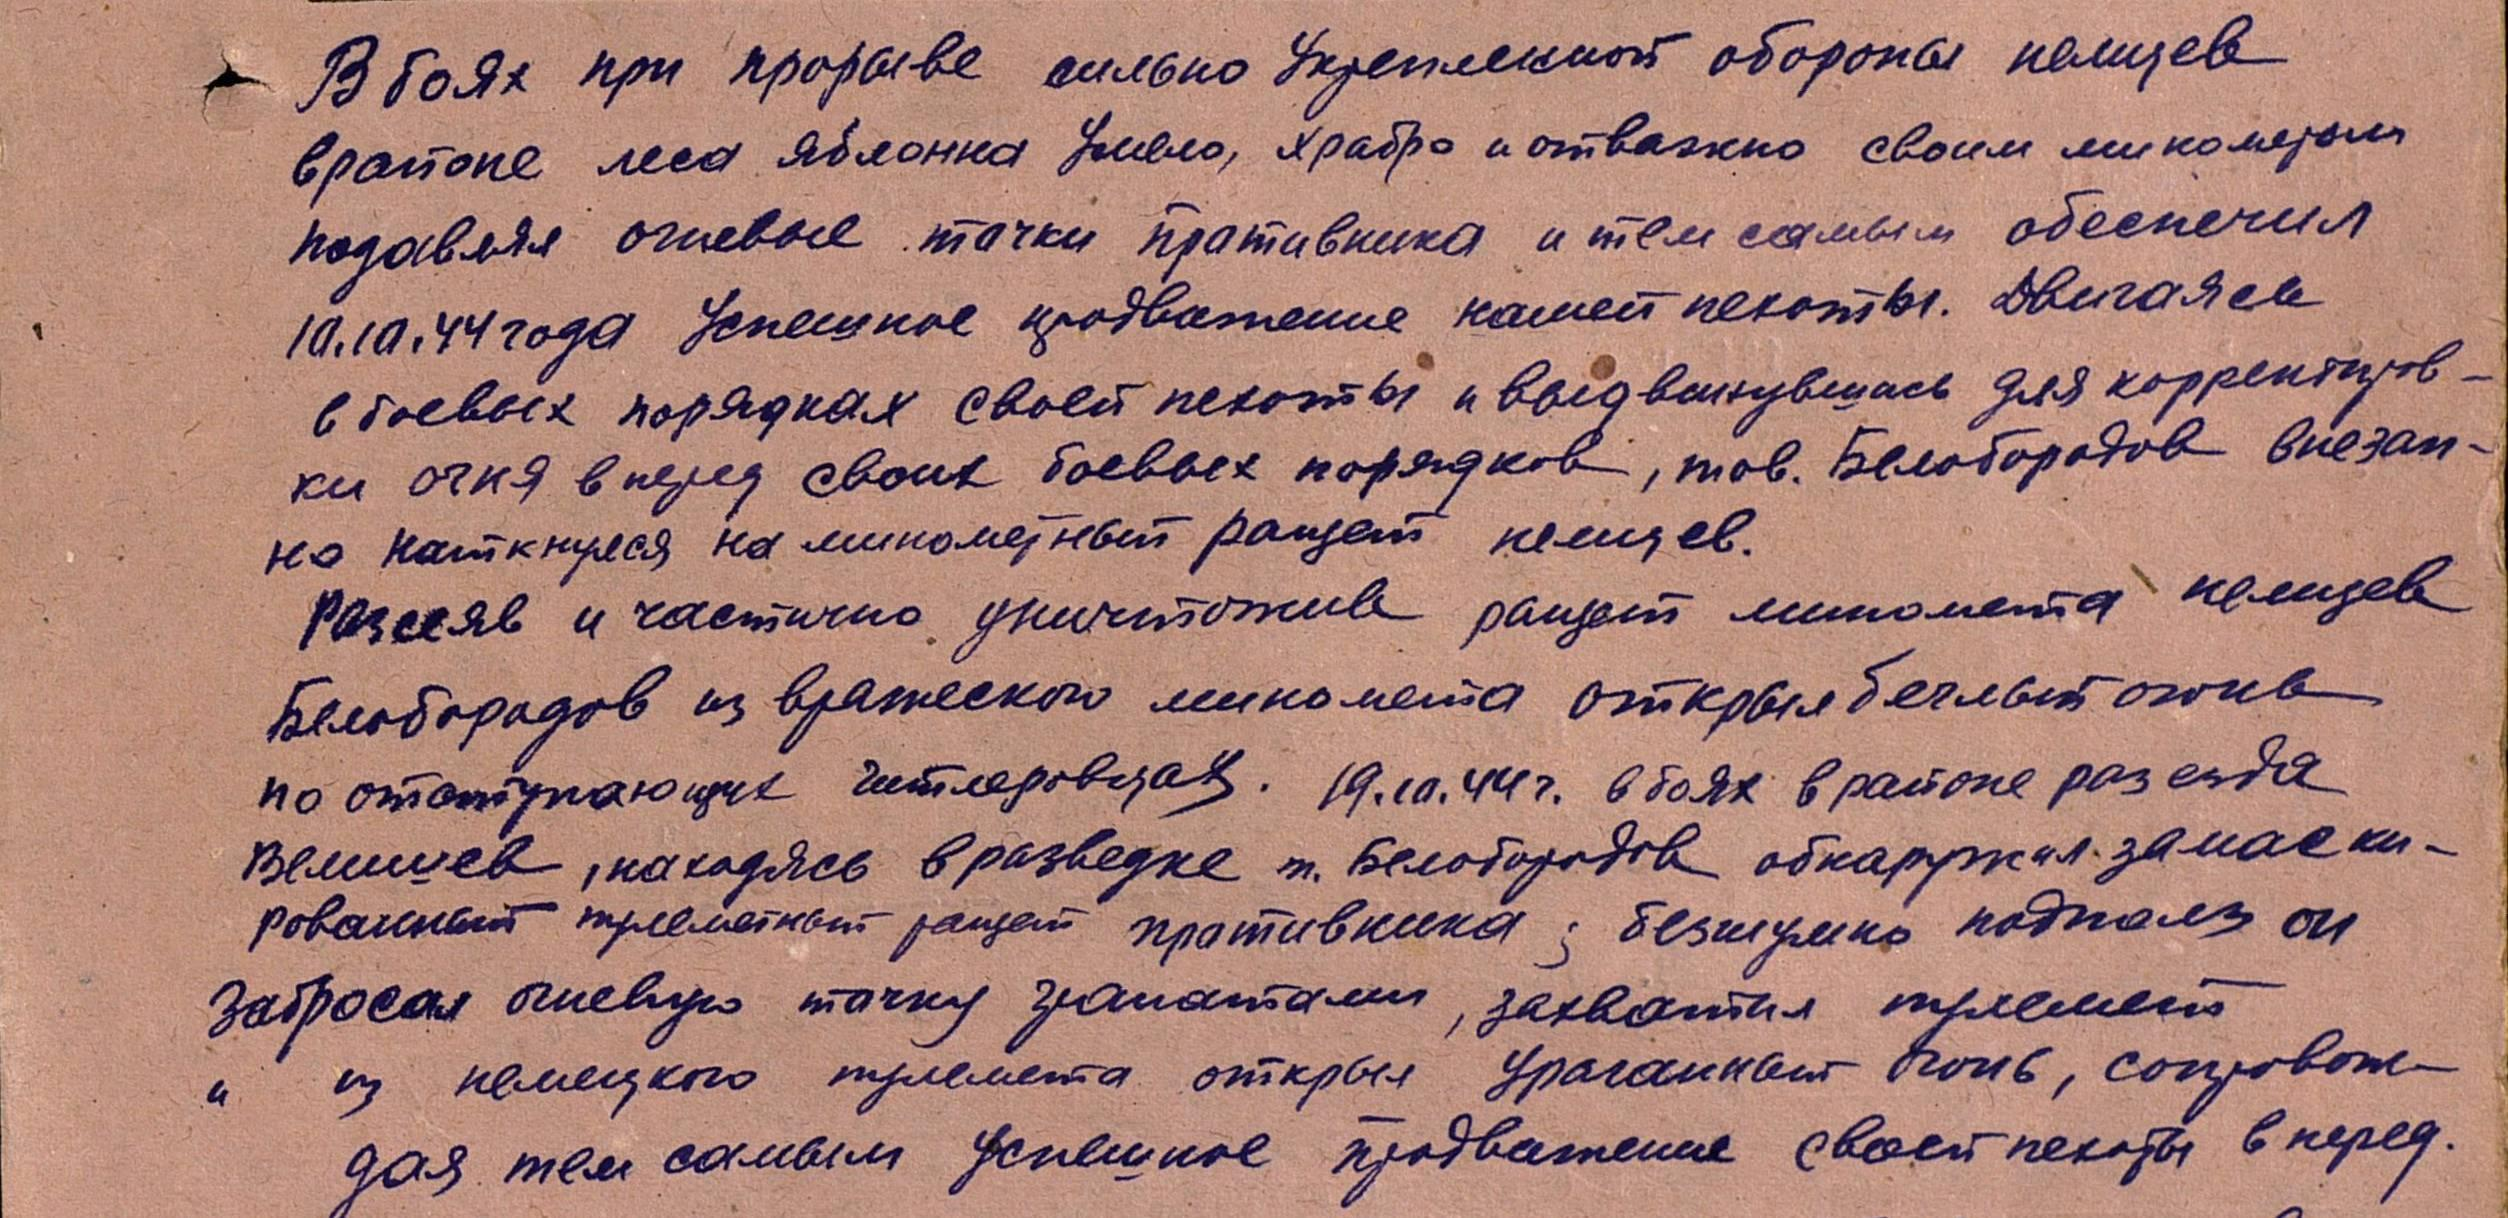 В боях при прорыве сильно Укрепленной обороны немцев
в районе леса Яблонна Умело, храбро и отважно своим минометом
подавлял огневые тачки пративника и тем самым обеспечил
10.10.44 года Успешное продважение нашей пехоты. Двигаясь
в боевых порядках своей пехоты и выдвинувшись для корректиров-
ки огня вперед своих боевых порядков, тов. Белобородов внезап-
но наткнулся на минометный расщет немцев.
Разсеяв и частично уничтожив расщет миномета немцев
Белобородов из вражеского миномета открыл беглый огонь
по отступающих гитлеровцах. 19.10.44 г. в боях в районе разезда
, находясь в разведке т. Белобородов обнаружил замаски-
рованный пулеметный расщет пративника; безшумно подполз он
Забросал огневую тачку гранатами, захватил пулемет
и из немецкого пулемета открыл Ураганный огонь, сопровож-
дая тем самым Успешное продважение своей пехоты вперед.